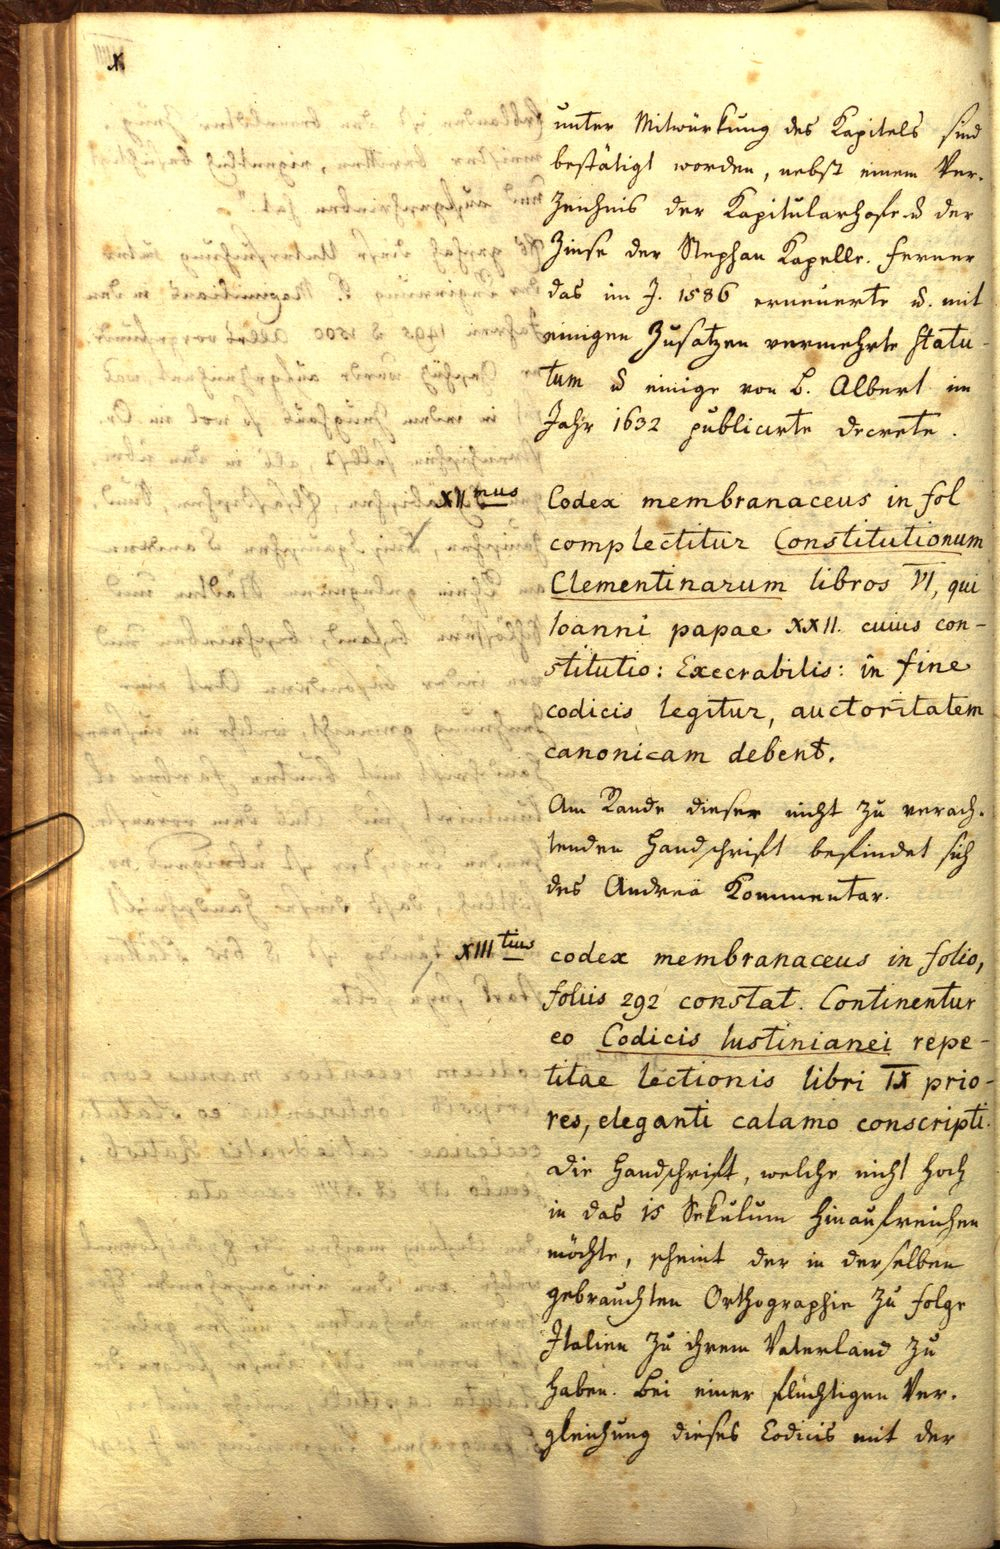 unter Mitwürkung des Kapitels sind
bestätigt worden, nebst einem Ver-
zeichnis der Kapitularhofe u der
Zinse der Stephan Kapelle. Ferner
das im J. 1586 erneuerte u. mit
einigen Zusatzen vermehrte Statu-
tum u einige von B. Albert im
Jahr 1632 publicirte Decrete.
XII mus
Codex membranaceus in fol
complectitur Constitutionum
Clementinarum libros VI, qui
Ioanni papae XXII. cuius con-
stitutio: Execrabilis: in fine
codicis legitur, auctoritatem
canonicam debent.
Am Rande dieser nicht zu verach-
tenden Handschrift befindet sich
des Andreä Kommentar.
XIII tius
codex membranaceus in folio,
foliis 292 constat. Continentur
eo Codicis Iustinianei repe-
titae lectionis libri IX prio-
res, eleganti calamo conscripti.
Die Handschrift, welche nicht hoch
in das 15 Sekulum hinaufreichen
möchte, scheint der in derselben
gebrauchten Orthographie zu folge
Italien zu ihrem Vaterland zu
haben. Bei einer flüchtigen Ver-
gleichung dieses Codicis mit der